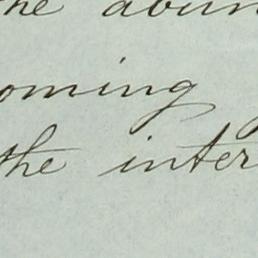 the abun
oming
the inter